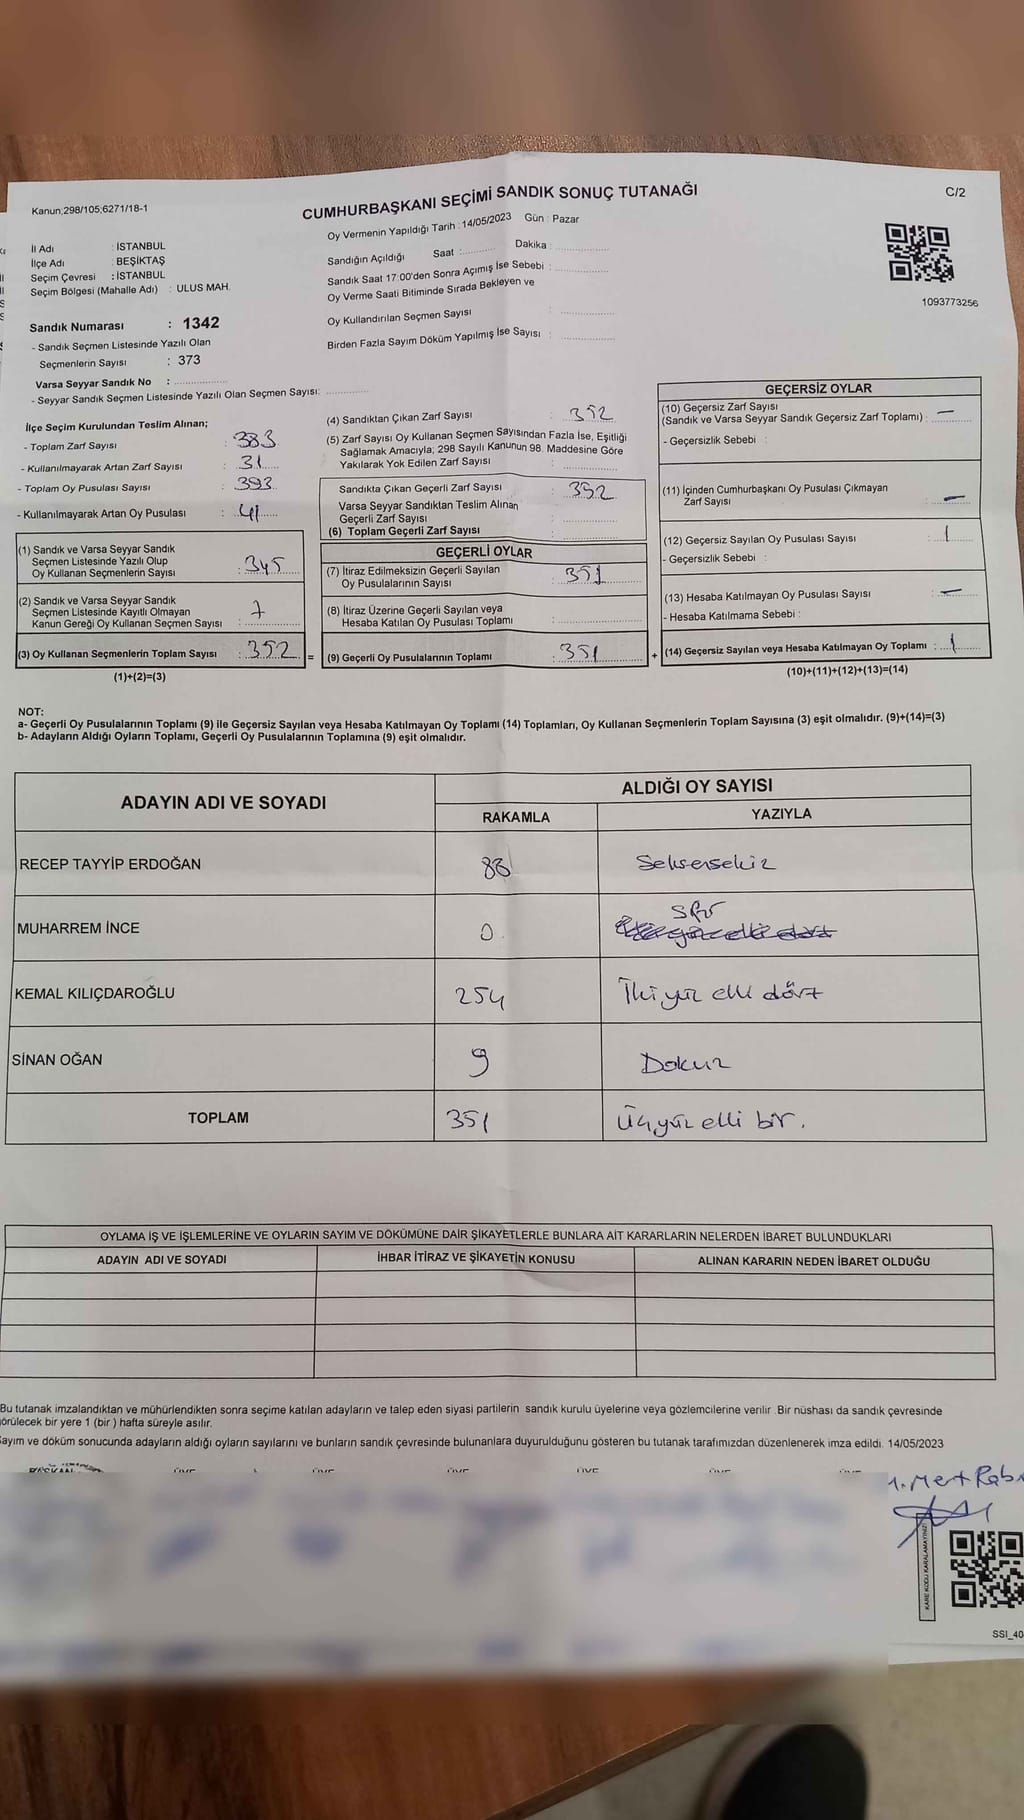 Kanun;298/105;6271/18-1
CUMHURBAŞKANI SEÇİMİ SANDIK SONUÇ TUTANAĞI
C/2
Oy Vermenin Yapıldığı Tarih : 14/05/2023 Gün : Pazar
İl Adı : İSTANBUL
İlçe Adı : BEŞİKTAŞ
Seçim Çevresi : İSTANBUL
Seçim Bölgesi (Mahalle Adı) : ULUS MAH.
Sandığın Açıldığı Saat : Dakika :
Sandık Saat 17:00'den Sonra Açımış İse Sebebi :
Oy Verme Saati Bitiminde Sırada Bekleyen ve
Oy Kullandırılan Seçmen Sayısı :
Birden Fazla Sayım Döküm Yapılmış İse Sayısı :
1093773256
Sandık Numarası : 1342
- Sandık Seçmen Listesinde Yazılı Olan
Seçmenlerin Sayısı : 373
Varsa Seyyar Sandık No :
- Seyyar Sandık Seçmen Listesinde Yazılı Olan Seçmen Sayısı:
İlçe Seçim Kurulundan Teslim Alınan;
- Toplam Zarf Sayısı : 383
- Kullanılmayarak Artan Zarf Sayısı : 31
- Toplam Oy Pusulası Sayısı : 393
- Kullanılmayarak Artan Oy Pusulası : 41
(1) Sandık ve Varsa Seyyar Sandık
Seçmen Listesinde Yazılı Olup
Oy Kullanan Seçmenlerin Sayısı : 345
(2) Sandık ve Varsa Seyyar Sandık
Seçmen Listesinde Kayıtlı Olmayan
Kanun Gereği Oy Kullanan Seçmen Sayısı : 7
(3) Oy Kullanan Seçmenlerin Toplam Sayısı : 352 =
(1)+(2)=(3)
(4) Sandıktan Çıkan Zarf Sayısı : 352
(5) Zarf Sayısı Oy Kullanan Seçmen Sayısından Fazla İse, Eşitliği
Sağlamak Amacıyla; 298 Sayılı Kanunun 98. Maddesine Göre
Yakılarak Yok Edilen Zarf Sayısı :
Sandıkta Çıkan Geçerli Zarf Sayısı : 352
Varsa Seyyar Sandıktan Teslim Alınan
Geçerli Zarf Sayısı :
(6) Toplam Geçerli Zarf Sayısı :
GEÇERLİ OYLAR
(7) İtiraz Edilmeksizin Geçerli Sayılan
Oy Pusulalarının Sayısı : 351
(8) İtiraz Üzerine Geçerli Sayılan veya
Hesaba Katılan Oy Pusulası Toplamı :
(9) Geçerli Oy Pusulalarının Toplamı : 351 +
GEÇERSİZ OYLAR
(10) Geçersiz Zarf Sayısı
(Sandık ve Varsa Seyyar Sandık Geçersiz Zarf Toplamı) : —
- Geçersizlik Sebebi :
(11) İçinden Cumhurbaşkanı Oy Pusulası Çıkmayan
Zarf Sayısı : —
(12) Geçersiz Sayılan Oy Pusulası Sayısı : 1
- Geçersizlik Sebebi :
(13) Hesaba Katılmayan Oy Pusulası Sayısı : —
- Hesaba Katılmama Sebebi :
(14) Geçersiz Sayılan veya Hesaba Katılmayan Oy Toplamı : 1
(10)+(11)+(12)+(13)=(14)
NOT:
a- Geçerli Oy Pusulalarının Toplamı (9) ile Geçersiz Sayılan veya Hesaba Katılmayan Oy Toplamı (14) Toplamları, Oy Kullanan Seçmenlerin Toplam Sayısına (3) eşit olmalıdır. (9)+(14)=(3)
b- Adayların Aldığı Oyların Toplamı, Geçerli Oy Pusulalarının Toplamına (9) eşit olmalıdır.
ADAYIN ADI VE SOYADI ALDIĞI OY SAYISI
RAKAMLA YAZIYLA
RECEP TAYYİP ERDOĞAN 88 Seksensekiz
MUHARREM İNCE 0 Sıfır
KEMAL KILIÇDAROĞLU 254 İkiyüz elli dört
SİNAN OĞAN 9 Dokuz
TOPLAM 351 Üçyüz elli bir.
OYLAMA İŞ VE İŞLEMLERİNE VE OYLARIN SAYIM VE DÖKÜMÜNE DAİR ŞİKAYETLERLE BUNLARA AİT KARARLARIN NELERDEN İBARET BULUNDUKLARI
ADAYIN ADI VE SOYADI İHBAR İTİRAZ VE ŞİKAYETİN KONUSU ALINAN KARARIN NEDEN İBARET OLDUĞU
Bu tutanak imzalandıktan ve mühürlendikten sonra seçime katılan adayların ve talep eden siyasi partilerin sandık kurulu üyelerine veya gözlemcilerine verilir. Bir nüshası da sandık çevresinde
görülecek bir yere 1 (bir) hafta süreyle asılır.
Sayım ve döküm sonucunda adayların aldığı oyların sayılarını ve bunların sandık çevresinde bulunanlara duyurulduğunu gösteren bu tutanak tarafımızdan düzenlenerek imza edildi. 14/05/2023
BAŞKAN ÜYE ÜYE ÜYE ÜYE ÜYE ÜYE
KARE KODU KARALAMAYINIZ!
SSI_40